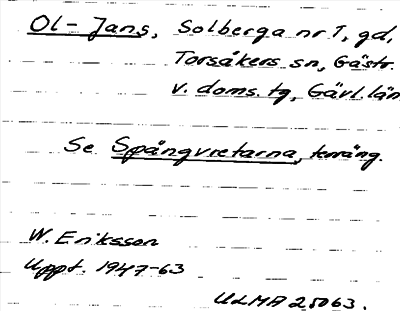 Ol-Jans, Solberga nr 1, gd,
Torsåkers sn, Gästr.
v. doms. tg, Gävl. län
Se Spångvretarna, terräng.
W. Eriksson
Uppt. 1947-63
ULMA 25063.